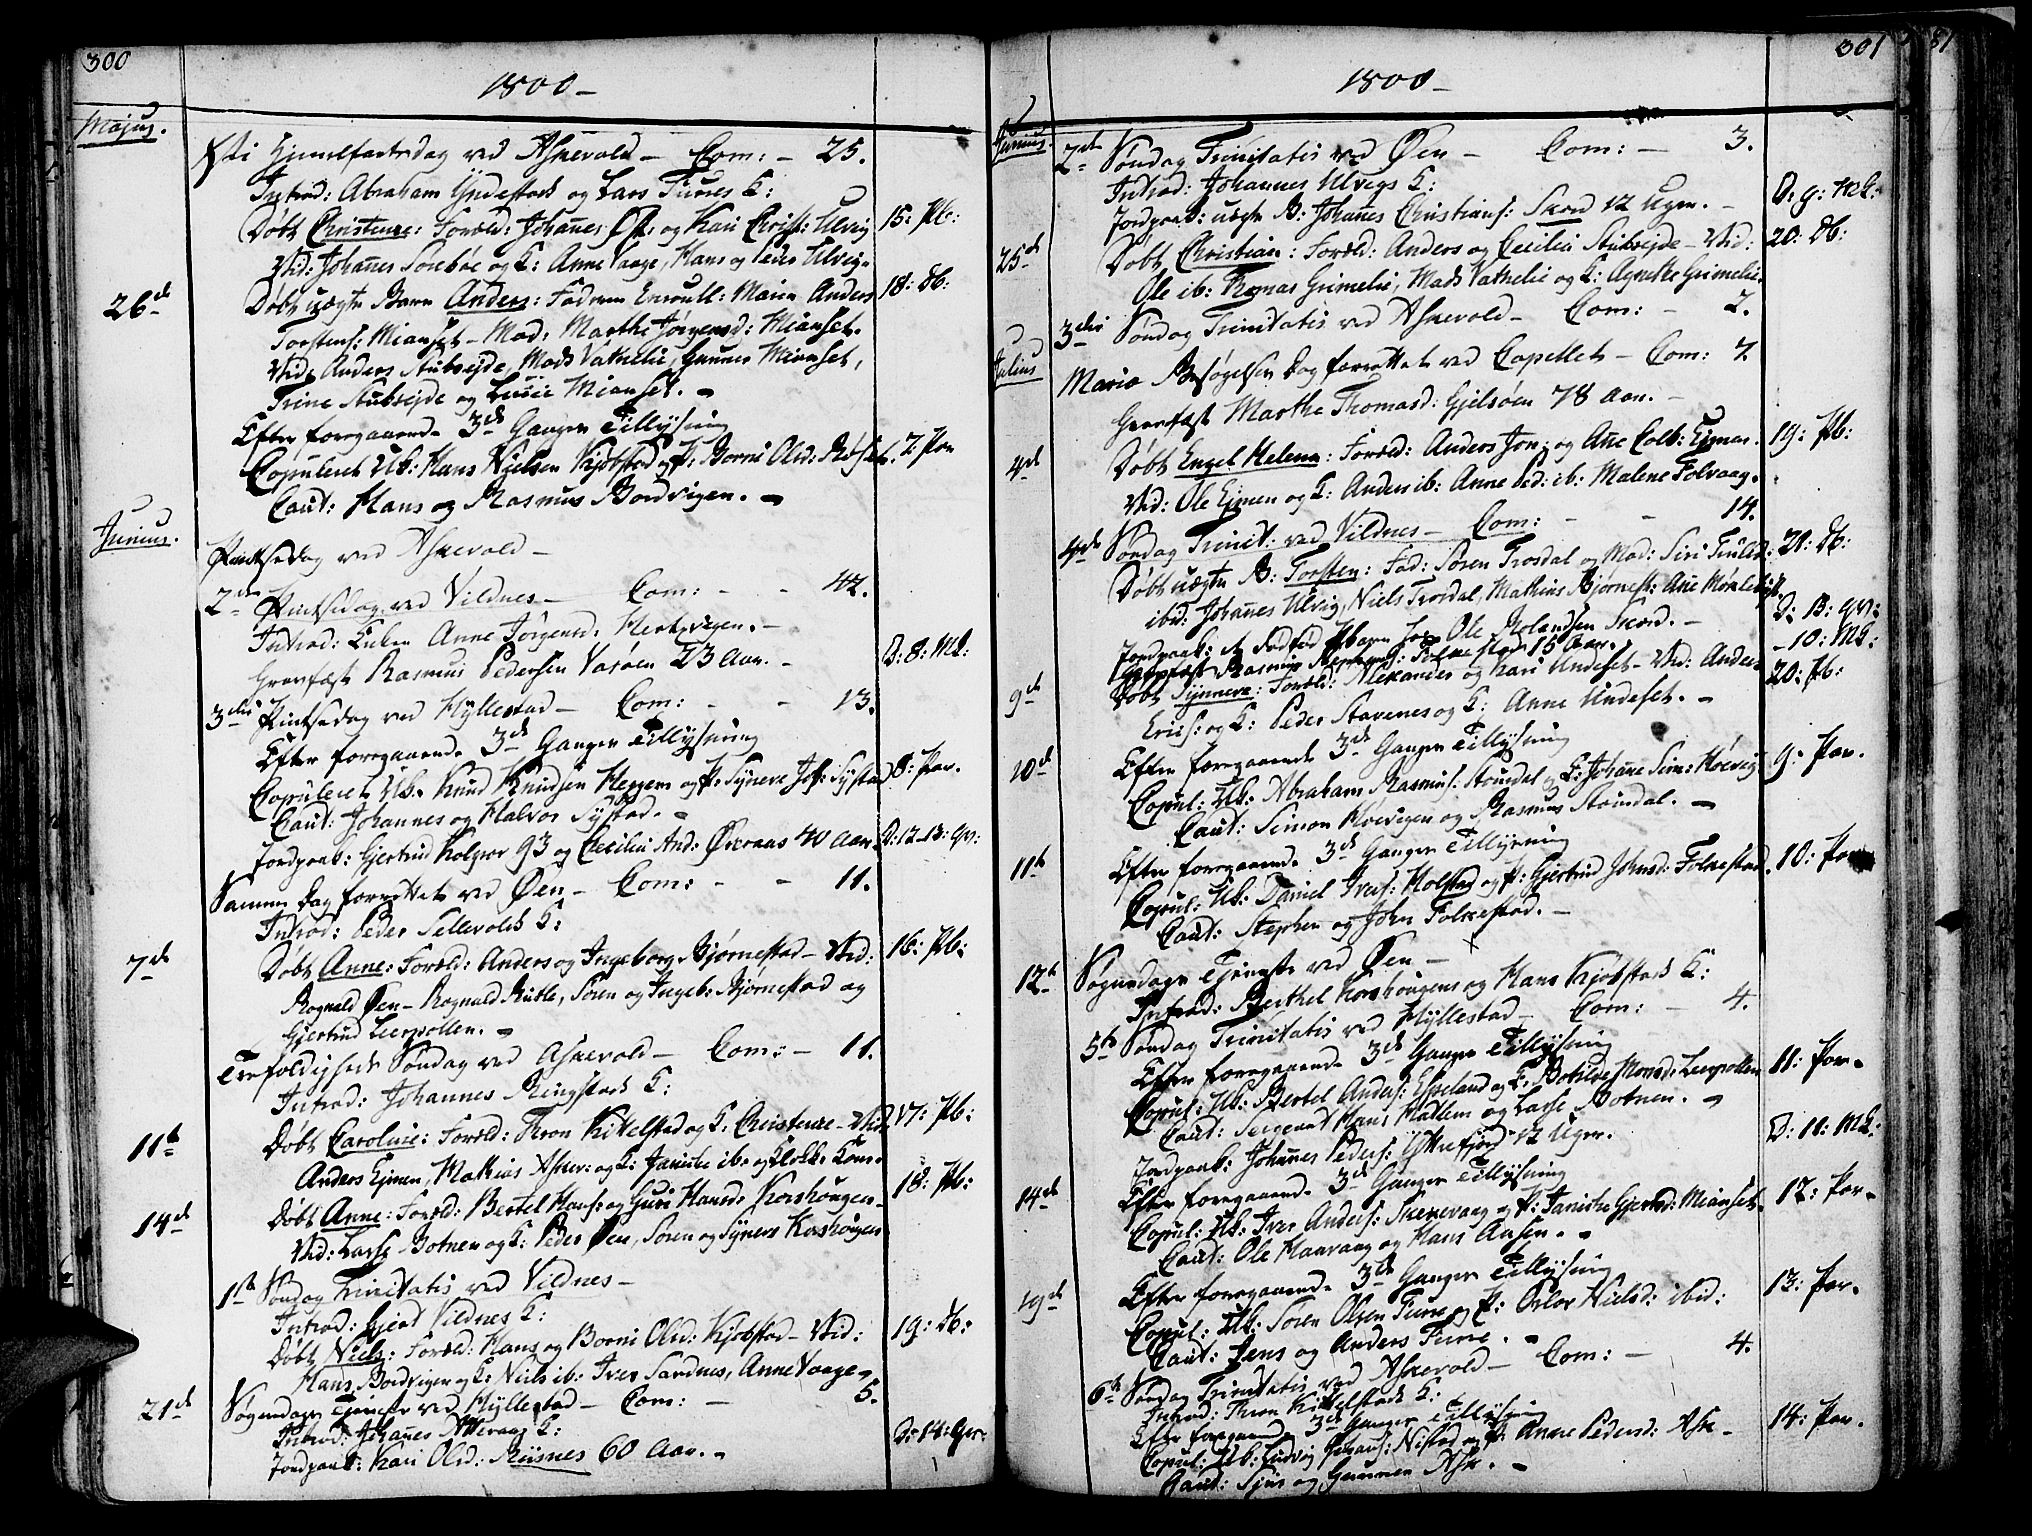 300
1800 –
Majus.
Xsti Himelfartsdag ved Askevold – Com: – 25.
Introd: Abraham Yndestads og Lars Tunes K:
Døbt Christense: Foræld: Johañes Ol: og Kari Christ: Ulvig 15: Pb:
Vid: Johañes Sørebøe og K: Anne Vaage, Hans og Peder Ulvig.
26de Døbt uægte Barn Anders: Faderen Enroull: Anders 18: Db:
Torstens: Mianset – Mod: Marthe Jørgensd: Mianset.
Vid: Anders Stubseide, Mads Vatnelie, Gunner Mianset,
Trine Stubseide og Lussie Mianset. –
Efter foregaaende 3de Ganger Tillysning
Copuleret Uk: Hans Nielsen Kjøbstad og P: Borni Olsd: 7. Par
Caut: Hans og Rasmus Bordvigen. –
Junius.
Pintsedag ved Askevold –
2den Pintsedag ved Vildnes – Com: – – 42.
Introd: Enken Anne Jørgensd: –
Gravfæst Rasmus Pedersen Varøen 23 Aar. – D: 8: Mk:
3die Pintsedag ved Hyllestad – Com: – – 13.
Efter foregaaende 3de Ganger Tillysning
Copuleret Uk: Knud Knudsen Heggem og P: Synneve Joh: Systad 8: Par.
Caut: Johannes og Halvor Systad. –
Jordpaak: Gjertrud Kolgrov 93 og Cecilie And: Øveraas 40 Aar. D: 12–13: Qv:
Samme Dag forrettet ved Øen – Com: – – 11.
Introd: Peder Sellevolds K:
7de Døbt Anne: Foræld: Anders og Ingeborg Bjørnestad – Vid: 16: Pb:
Rognald Øen – Rognald Rutle, Søren og Ingeb: Bjørnestad og
Gjertrud Leerpollen. –
Trefoldigheds Søndag ved Askevold – Com: – 11.
Introd: Johannes Ringstads K:
11te Døbt Caroline: Foræld: Thron Kittelstad og K: Christense – Vid: 17: Pb:
Anders Ejmen, Mathias Askev: og K: Janniche ib: og Klokk:
14de Døbt Anne: Foræld: Bertel Hans: og Guri Hansd: Korshougen – 18: Pb:
Vid: Lasse Botnen og K: Peder Øen, Søren og Synneve Korshougen
1ste Søndag Trinitatis ved Vildnes –
Introd: Gjert Vildnes K:
Døbt Niels: Foræld: Hans og Borni Olsd: Kjøbstad – Vid: 19: Db:
Hans Bordvigen og K: Niels ib: Iver Sandnes, Anne Vaage –
21de Søgnedags Tjeneste ved Hyllestad – Com: – 5.
Introd: Johañes K:
Jordpaak: Kari Olsd: Risnes 60 Aar. – D: 14: Qv:
301
1800 –
Junius.
2de Søndag Trinitatis ved Øen – Com: – 3.
Introd: Johannes Ulvigs K:
Jordpaak: uægte B: Johañes Christians: Skord 12 Uger. – D: 9: Mk:
25de Døbt Christian: Foræld: Anders og Cecilie Stubseide – Vid: 20: Db:
Ole ib: Thomas Grimelie, Mads Vatnelie og K: Agnethe Grimelie
3die Søndag Trinitatis ved Askevold – Com: – 2.
Julius
Maria Besøgelses Dag forrettet ved Capellet – Com: 7.
Gravfæst Marthe Thomasd: Gjelsøen 78 Aar. –
4de Døbt Engel Helena: Foræld: Anders Jon: og Añe Colb: Ejmen. 19: Pb:
Vid: Ole Ejmen og K: Anders ib: Anne Ped: ib: Malene Folvaag.
4de Søndag Trinit: ved Vildnes – Com: – – 14.
Døbt uægte B: Torsten: Fad: Søren Trosdal og Mod: Siri Trulsd: 21: Db:
ibid: Johañes Ulvig, Niels Trosdal, Mathias Bjørnest: Añe
Jordpaak: et dødfød Pbarn for Ole Rolandsen Skord. – D: 13: Qv:
Gravfæst Rasmus 15 Aar. – 10: Mk:
9de Døbt Synneve: Foræld: Alexander og Kari Undeset – Vid: Anders 20: Pb:
Erics: og K: Peder Stavenes og K: Anne Undeset. –
10de Efter foregaaende 3de Ganger Tillysning
Copul: Uk: Abraham Rasmus: Stoindal og P: Johañe Sim: Høevig 9: Par.
Caut: Simon Høevigen og Rasmus Stoindal. –
11te Efter foregaaende 3de Ganger Tillysning
Copul: Uk: Daniel Ivers: Holstad og P: Gjertrud Johnsd: Folkestad. 10: Par
Caut: Stephen og John Folkestad. –
12te Søgnedags Tjeneste ved Øen –
Introd: Berthel Korshougens og Hans Kjøbstads K:
5te Søndag Trinitatis ved Hyllestad – Com: – 4.
Efter foregaaende 3de Ganger Tillysning
Copul: Uk: Bertel Anders: Espeland og P: Botilde Monsd: Leerpollen 11: Par.
Caut: Sergeant Hans Hatlem og Lasse Botnen. –
Jordpaak: Johañes Peders: Yttrefjord 12 Uger. D: 11: Mk:
14de Efter foregaaende 3de Ganger Tillysning
Copul: Uk: Iver Anders: Skervaag og P: Janiche Gjertsd: Mianset. 12: Par.
Caut: Ole Haavaag og Hans Aasen. –
19de Efter foregaaende 3de Ganger Tillysning
Copul: Uk: Søren Olsen Tune og P: Oslov Nielsd: ibid: 13: Par.
Caut: Jens og Anders Tune. –
6te Søndag Trinitatis ved Askevold – Com: – 4.
Introd: Thron Kittelstads K:
Efter foregaaende 3de Ganger Tillysning
Copul: Uk: Ludvig Nistad og P: Anne Pedersd: Ask – 14: Par.
Caut: Sjur og Gunner Ask. –